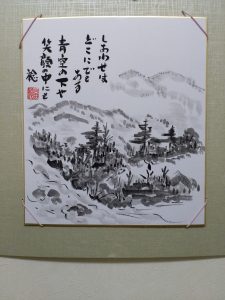 しあわせは
どこにでも
ある
青空の下や
笑顔の中にも